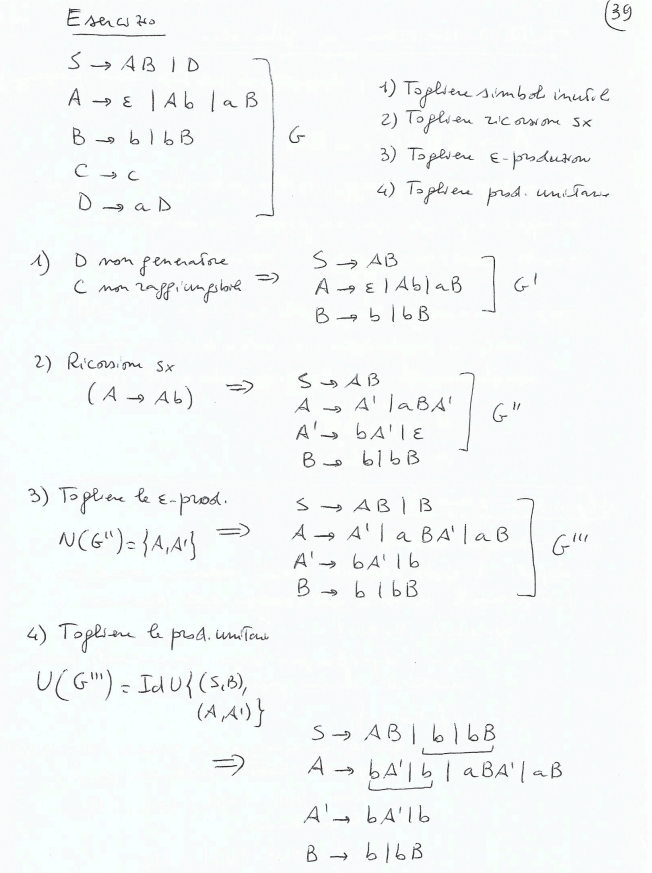 Esercizio
39
S → AB | D
A → ε | Ab | aB
B → b | bB
C → c
D → aD
G
1) Togliere simboli inutili
2) Togliere ricorsione sx
3) Togliere ε-produzioni
4) Togliere prod. unitarie
1) D non generatore
C non raggiungibile ⇒
S → AB
A → ε | Ab | aB
B → b | bB
G'
2) Ricorsione sx
(A → Ab) ⇒
S → AB
A → A' | aBA'
A' → bA' | ε
B → b | bB
G''
3) Togliere le ε-prod.
N(G'') = {A, A'} ⇒
S → AB | B
A → A' | aBA' | aB
A' → bA' | b
B → b | bB
G'''
4) Togliere le prod. unitarie
U(G''') = Id U {(S,B),
(A,A')}
⇒
S → AB | b | bB
A → bA' | b | aBA' | aB
A' → bA' | b
B → b | bB